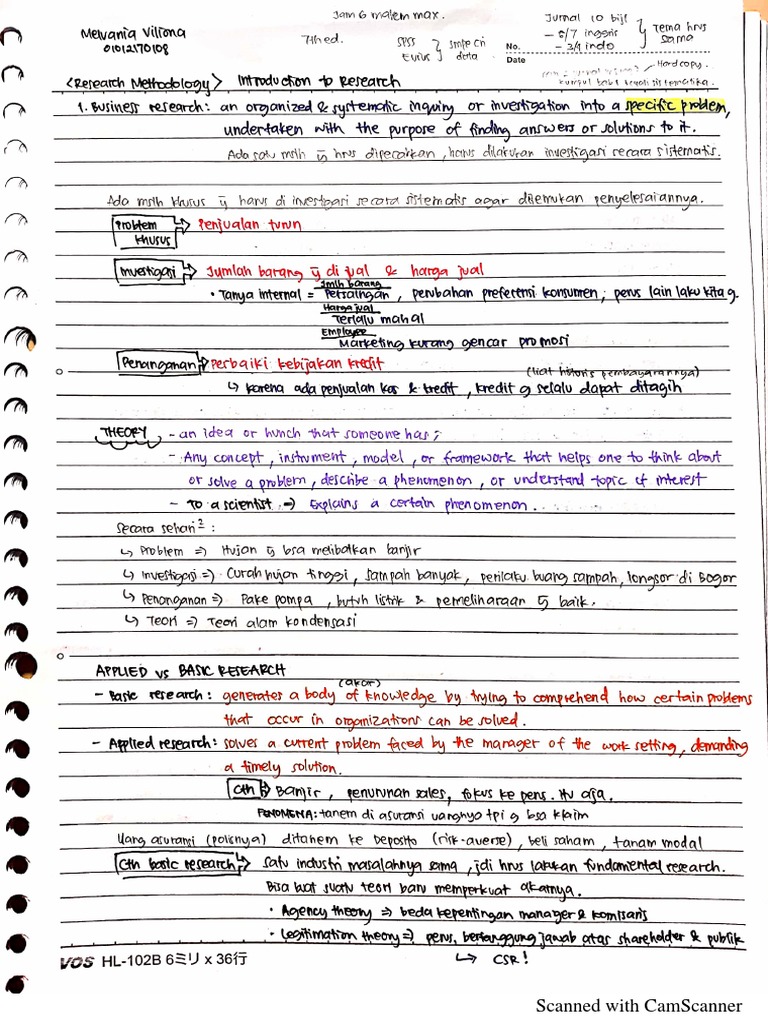 Jam 6 malem max.
Melvania Viliana
01012170108
7th ed.
SPSS
Eviws
smpe cri
data
Jurnal 10 biji
- 6/7 inggris
- 3/4 indo
Tema hrus
sama
No.
Date
Hardcopy
<Research Methodology> Introduction to Research
1. Business research: an organized & systematic inquiry or investigation into a specific problem,
undertaken with the purpose of finding answers or solutions to it.
Ada satu mslh yg hrus dipecahkan, harus dilakukan investigasi secara sistematis.
Ada mslh khusus yg harus di investigasi secara sistematis agar ditemukan penyelesaiannya.
Problem khusus → Penjualan turun
Investigasi → Jumlah barang yg di jual & harga jual
Jmlh barang
• Tanya internal = Persaingan, perubahan preferensi konsumen; perus lain laku kita g.
Harga jual
Terlalu mahal
Employee
Marketing kurang gencar promosi
Penanganan → Perbaiki kebijakan kredit
(liat historis pembayarannya)
↳ karena ada penjualan kas & kredit, kredit g selalu dapat ditagih
THEORY - an idea or hunch that someone has;
- Any concept, instrument, model, or framework that helps one to think about
or solve a problem, describe a phenomenon, or understand topic of interest
- To a scientist => Explains a certain phenomenon..
Secara sehari²:
↳ Problem => Hujan yg bsa melibatkan banjir
↳ Investigasi => Curah hujan tinggi, sampah banyak, perilaku buang sampah, longsor di Bogor
↳ Penanganan => Pake pompa, butuh listrik & pemeliharaan yg baik.
↳ Teori => Teori alam kondensasi
APPLIED vs BASIC RESEARCH
(akar)
- Basic research: generates a body of knowledge by trying to comprehend how certain problems
that occur in organizations can be solved.
- Applied research: solves a current problem faced by the manager of the work setting, demanding
a timely solution.
Cth → Banjir, penurunan sales, fokus ke pers. itu aja.
FENOMENA: tanem di asuransi uangnya tpi g bsa klaim
Uang asuransi (polisnya) ditanem ke Deposito (risk-averse), beli saham, tanam modal
Cth basic research → satu industri masalahnya sama, jdi hrus lakukan fundamental research.
Bisa buat suatu teori baru memperkuat akarnya.
• Agency theory => beda kepentingan manager & komisaris
• Legitimation theory => perus. bertanggung jawab atas shareholder & publik
↳ CSR!
VOS HL-102B 6ミリ x 36行
Scanned with CamScanner